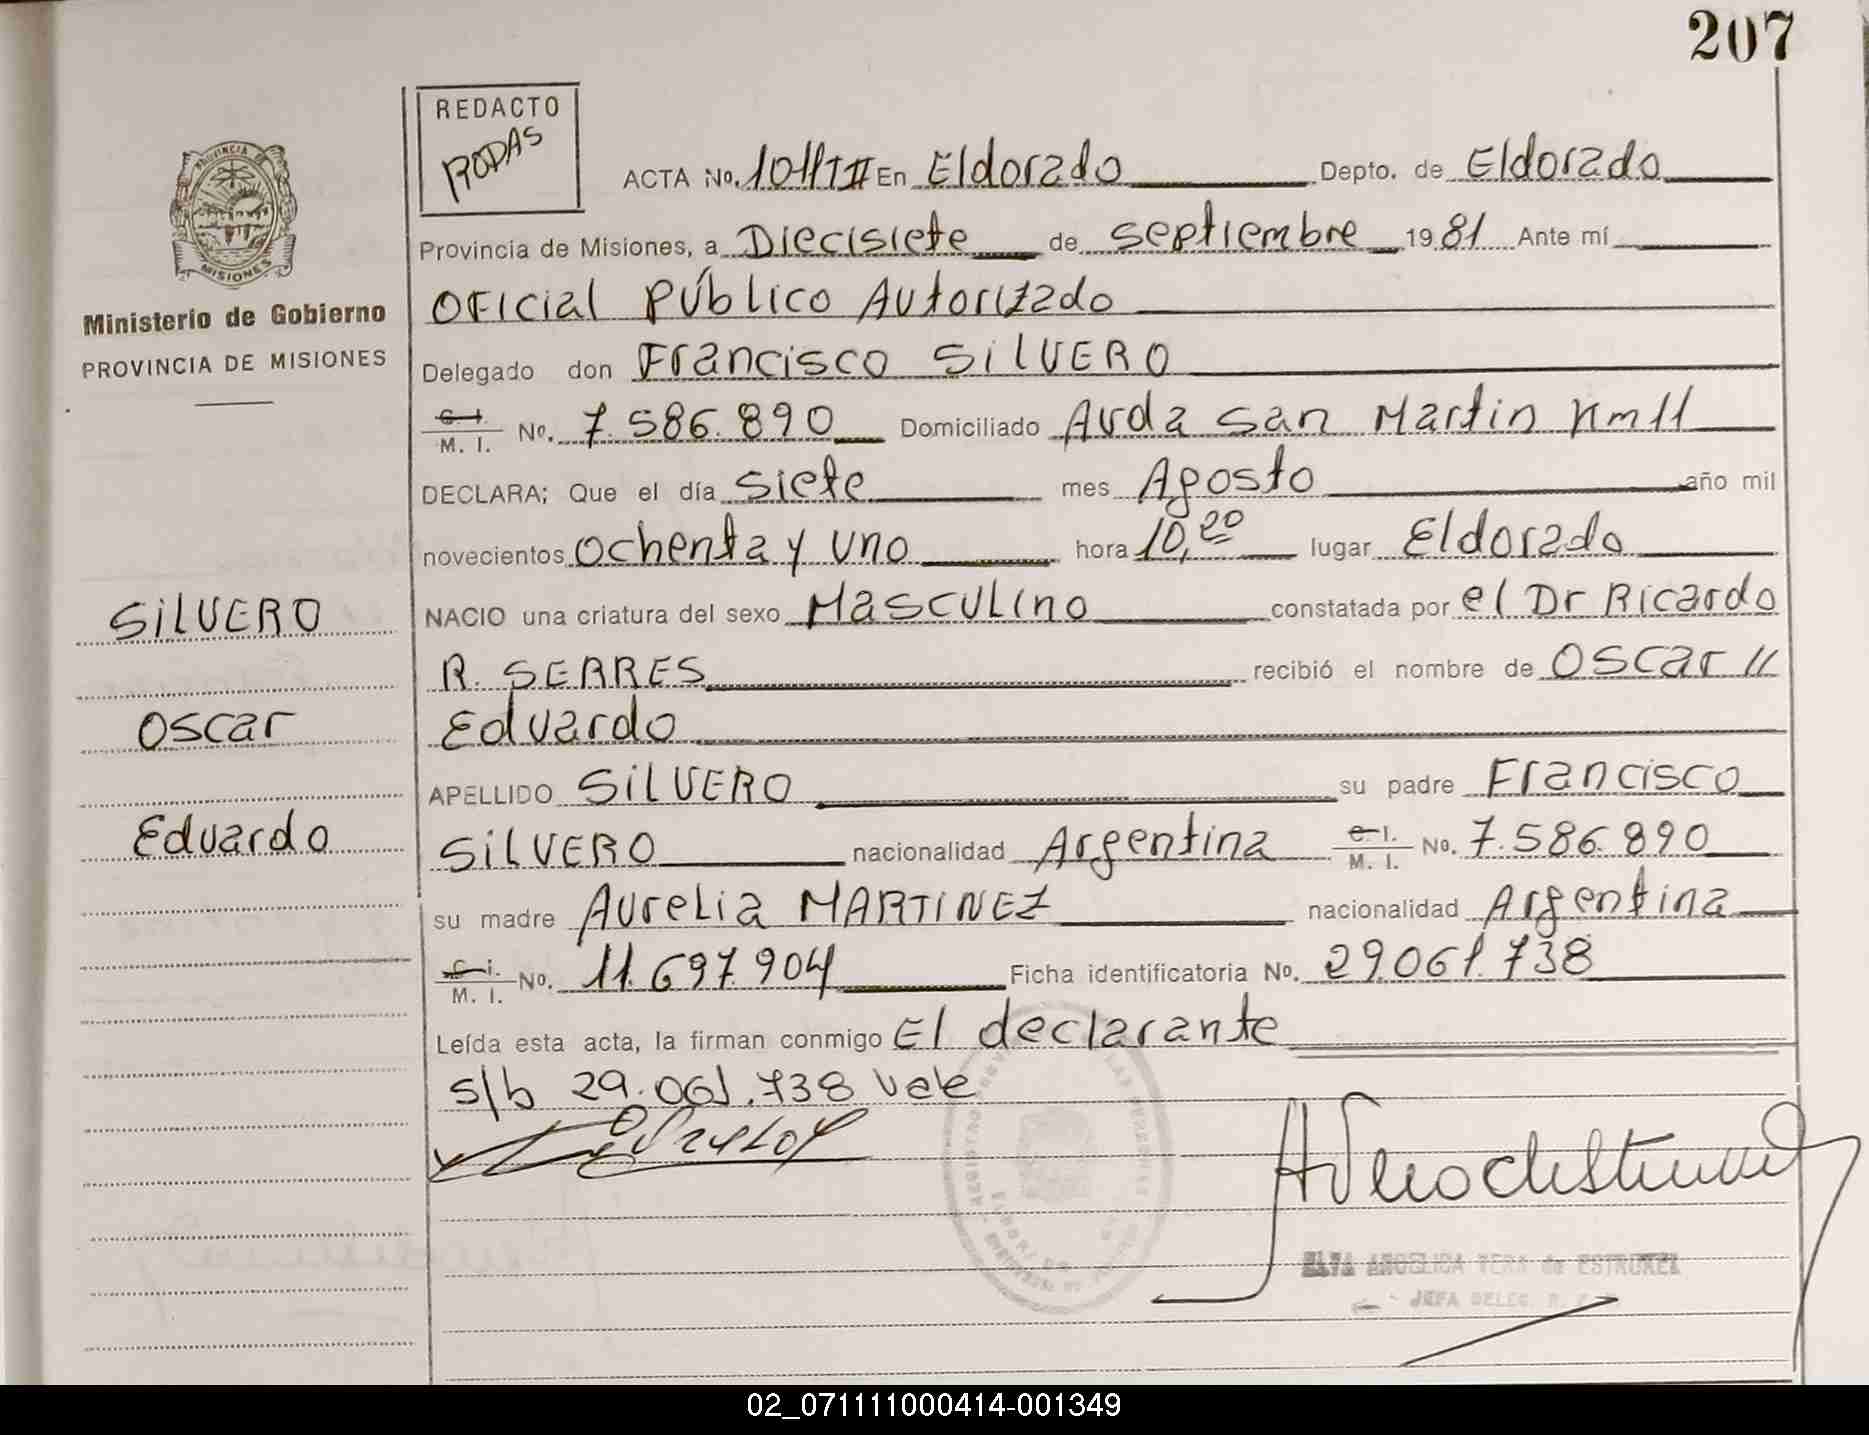 207
REDACTO
RODAS
ACTA No. 1011TII En Eldorado Depto. de Eldorado
Provincia de Misiones, a Diecisiete de septiembre 1981 Ante mí
Oficial Público Autorizado
Delegado don Francisco SILVERO
C. I. M. I. No. 7.586.890 Domiciliado Avda San Martin Km 11
DECLARA; Que el día siete mes Agosto año mil
novecientos ochenta y uno hora 10,20 lugar Eldorado
NACIO una criatura del sexo Masculino constatada por el Dr Ricardo
R. SERRES recibió el nombre de Oscar //
Eduardo
APELLIDO SILVERO su padre Francisco
SILVERO nacionalidad Argentina C. I. M. I. No. 7.586.890
su madre Aurelia MARTINEZ nacionalidad Argentina
C. I. M. I. No. 11.697.904 Ficha identificatoria No. 29.061.738
Leída esta acta, la firman conmigo El declarante
s/b 29.061.738 Vale
PROVINCIA DE
MISIONES
Ministerio de Gobierno
PROVINCIA DE MISIONES
SILVERO
Oscar
Eduardo
ELVA ANGELICA VERA de ESTRUMEL
JEFA DELEG.
02_071111000414-001349